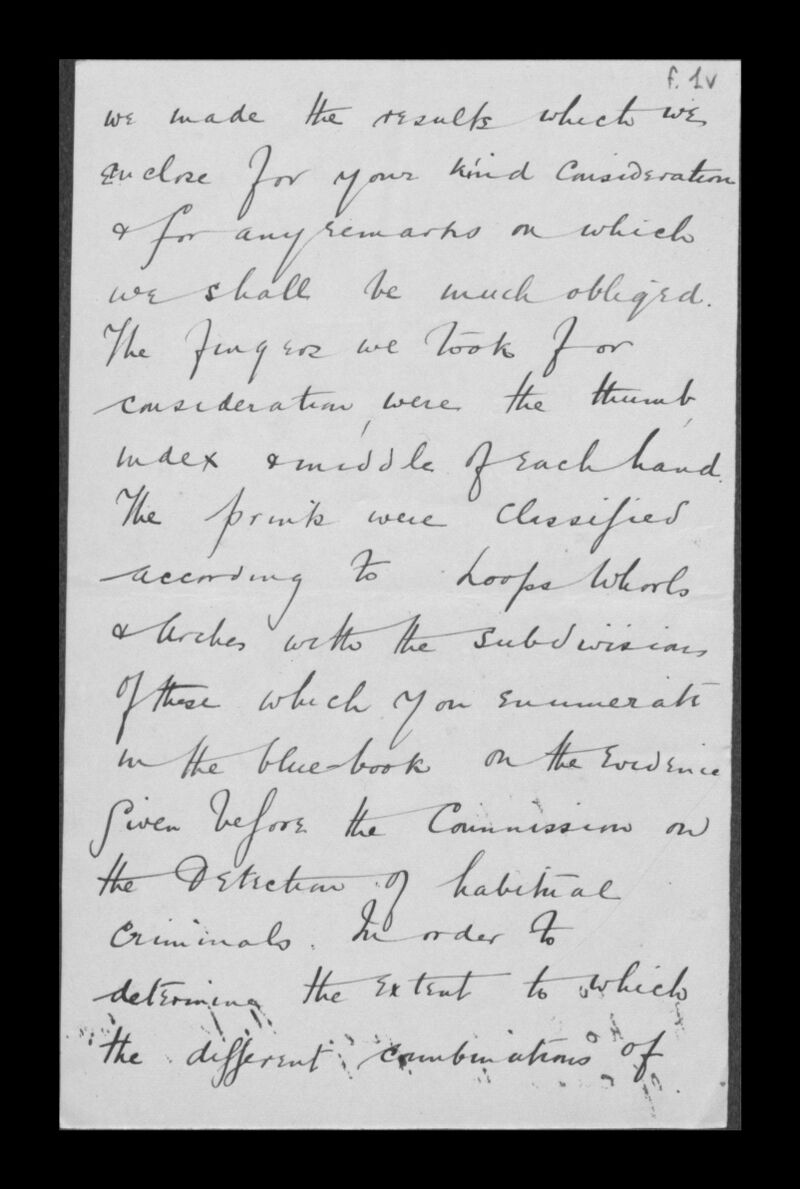 f. 1v
we made the results which we
enclose for your kind Consideration
& for any remarks on which
we shall be much obliged.
The fingers we took for
consideration, were the thumb,
index & middle of each hand.
The prints were classified
according to Loops Whorls
& Arches with the subdivisions
of these which you enumerate
in the blue-book on the Evidence
Given before the Commission on
the Detection of habitual
Criminals. In order to
determine the extent to which
the different combinations of